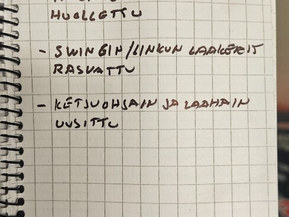 HUOLLETTU
- SWINGIN/LINKUN LAAKERIT
RASVATTU
- KETJUOHJAIN JA LAAHAIN
UUSITTU